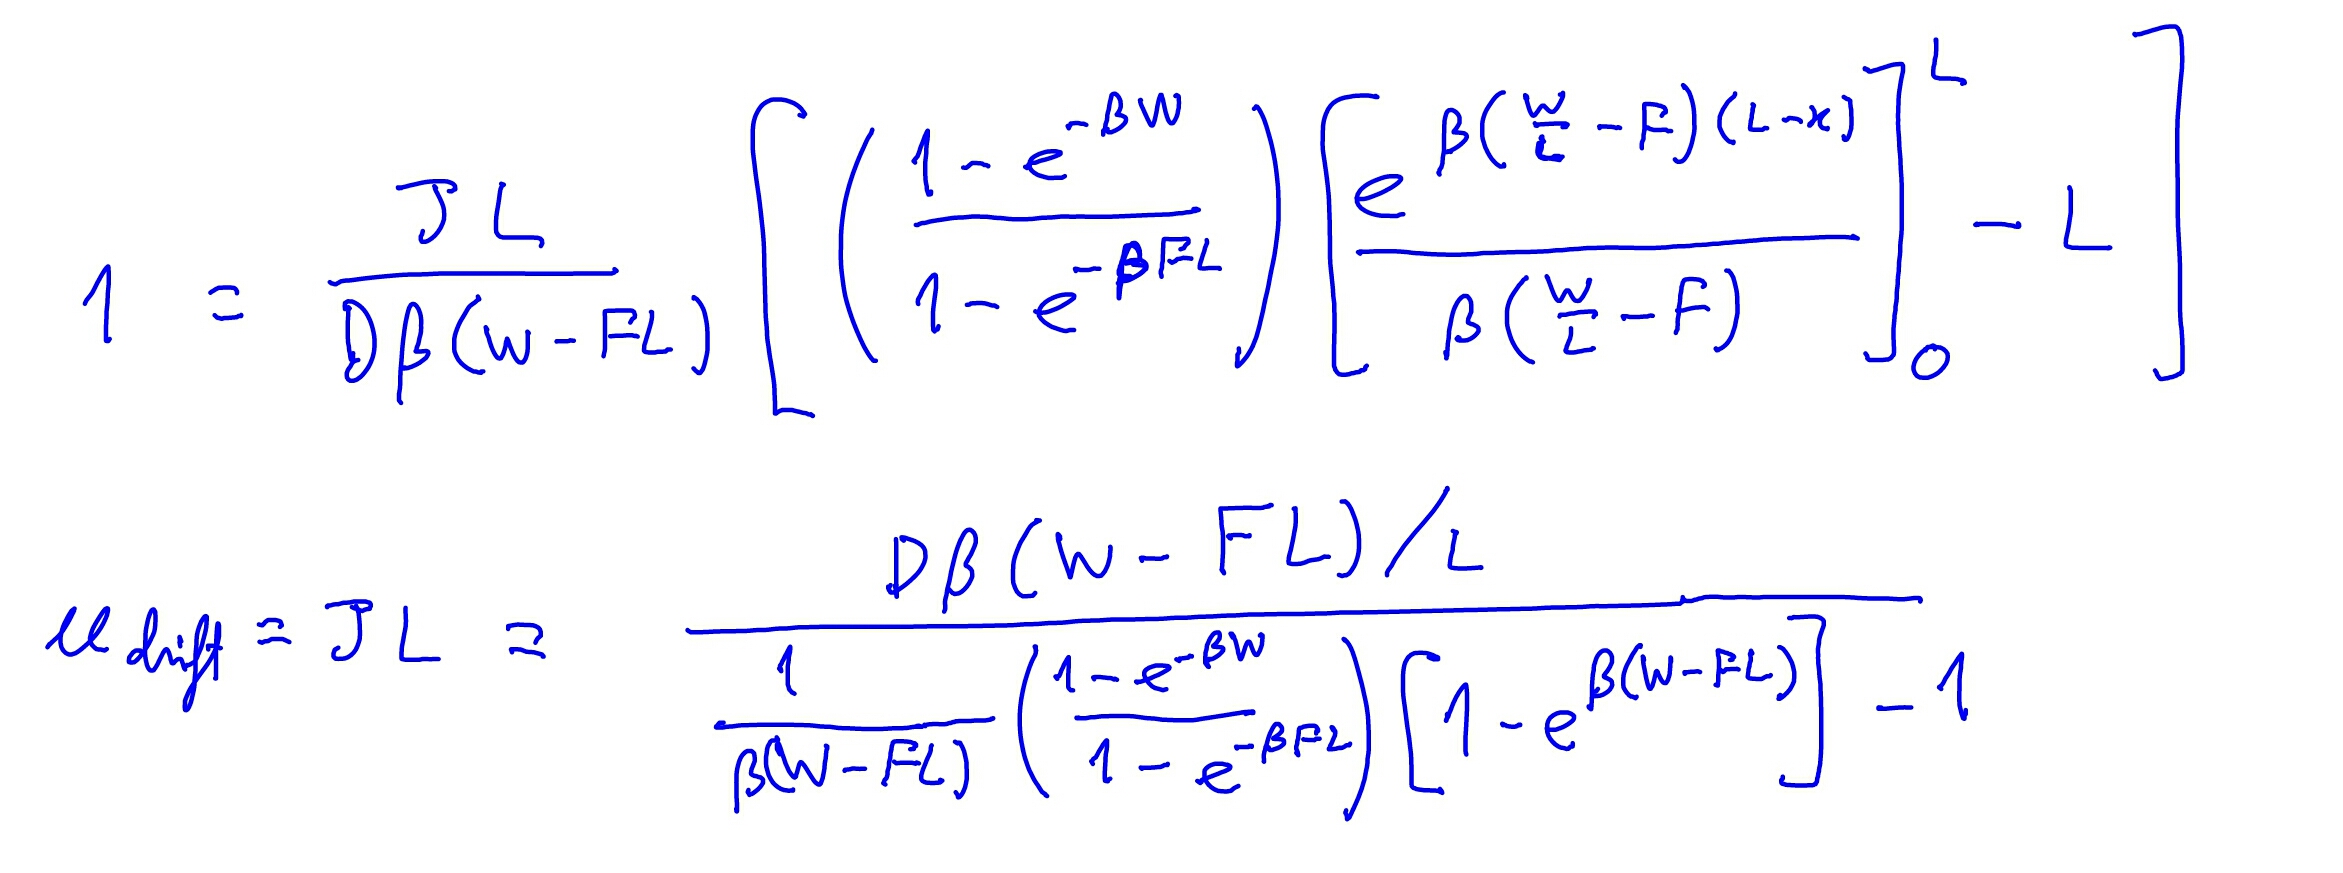 $1 = \frac{JL}{D\beta(W-FL)} \left[ \left( \frac{1-e^{-\beta W}}{1-e^{-\beta FL}} \right) \left[ \frac{e^{\beta(\frac{W}{L}-F)(L-x)}}{\beta(\frac{W}{L}-F)} \right]_0^L - L \right]$
$u_{drift} = JL = \frac{D\beta(W-FL)/L}{\frac{1}{\beta(W-FL)} \left( \frac{1-e^{-\beta W}}{1-e^{-\beta FL}} \right) \left[ 1-e^{\beta(W-FL)} \right] - 1}$